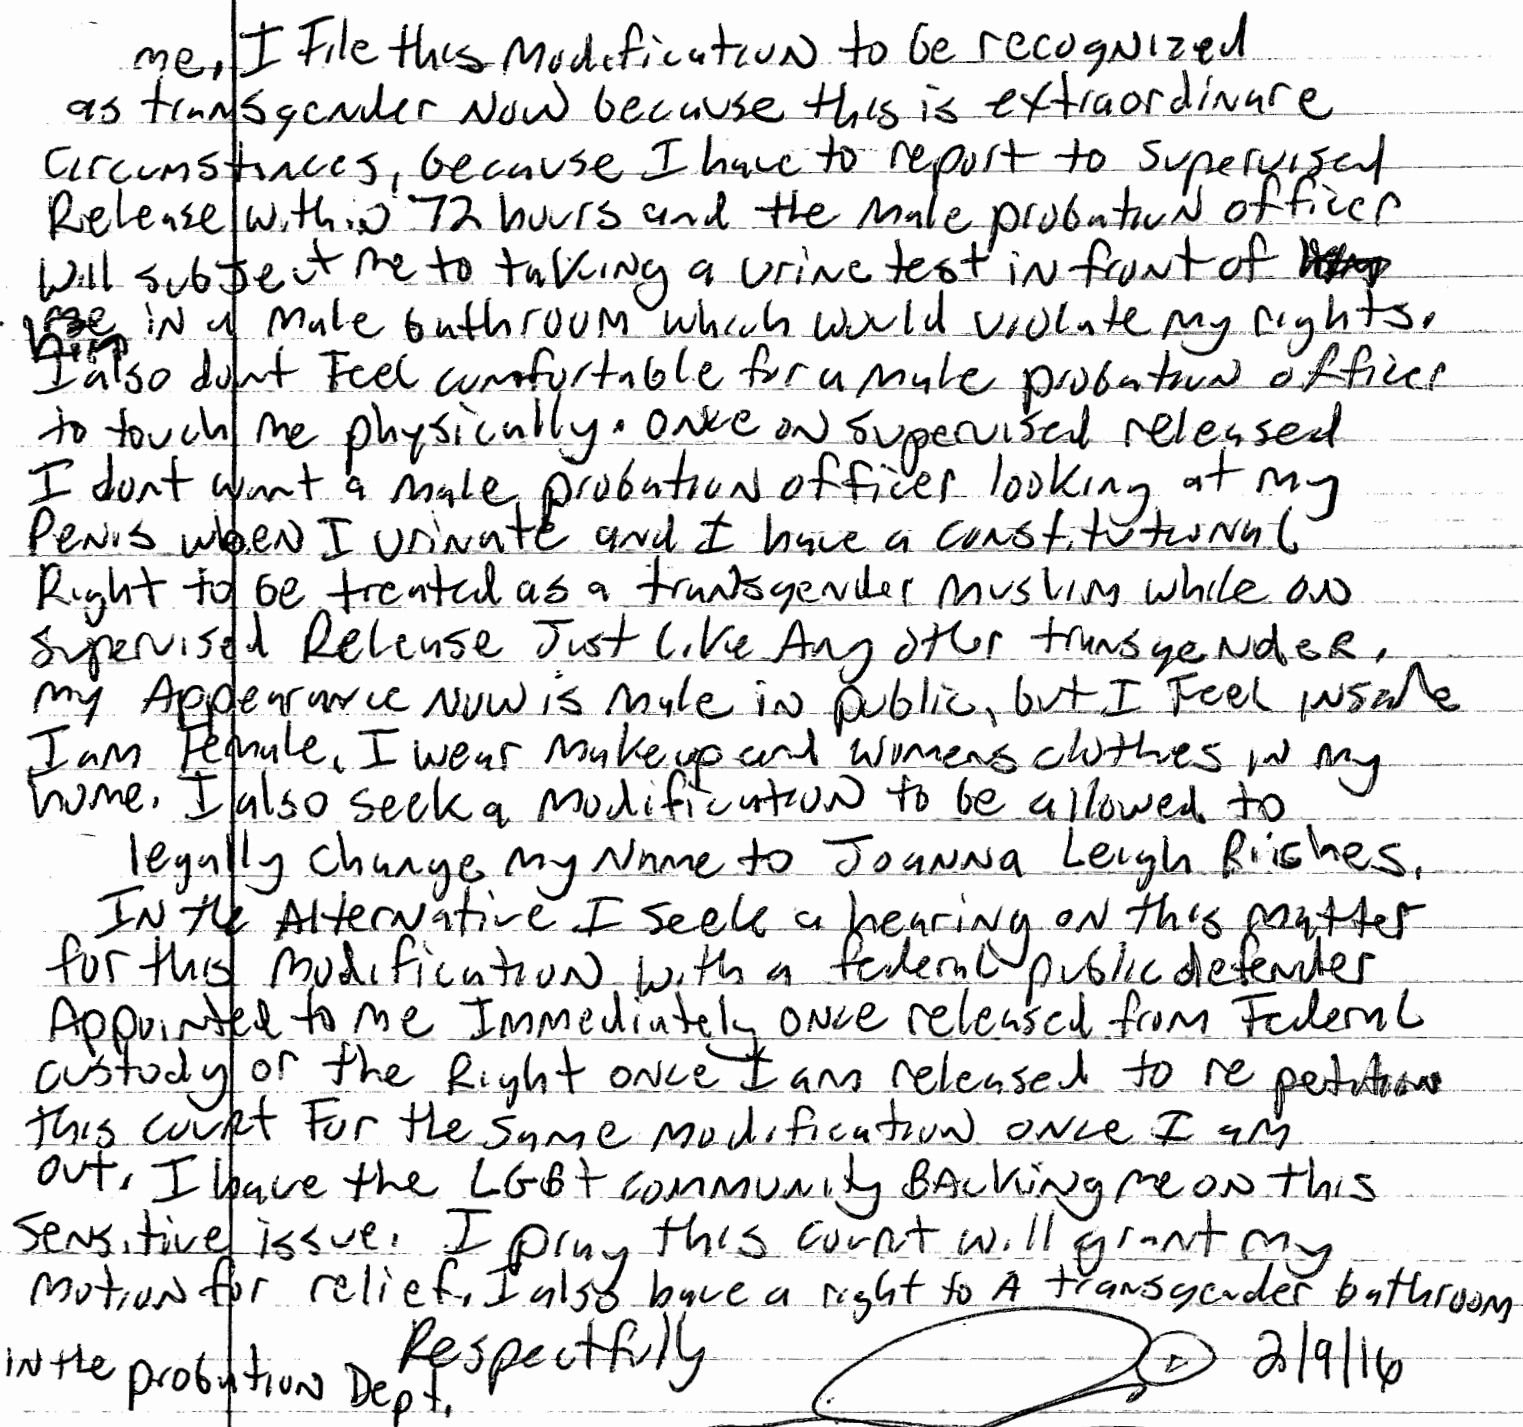 me, I File this Modification to be recognized
as transgender Now because this is extraordinare
Circumstances, because I have to report to supervised
Release within 72 hours and the male probation officer
Will subject me to taking a urine test in front of
him in a male bathroom which would violate my rights.
I also dont Feel comfortable for a male probation officer
to touch me physically. Once on supervised released
I dont want a male probation officer looking at my
Penis when I urinate and I have a constitutional
Right to be treated as a transgender muslim while on
supervised Release Just like Any other transgender.
my Appearance Now is male in public, but I Feel inside
I am Female, I wear makeup and womens clothes in my
home. I also seek a modification to be allowed to
legally change my Name to Joanna Leigh Riches.
In the Alternative I seek a hearing on this matter
for this modification with a federal public defender
Appointed to me Immediately once released from Federal
custody or the Right once I am released to re petition
this court For the same modification once I am
out. I have the LGBT community BAcking me on this
sensitive issue. I pray this court will grant my
motion for relief. I also have a right to A transgender bathroom
in the probation Dept.
Respectfully
2/9/16